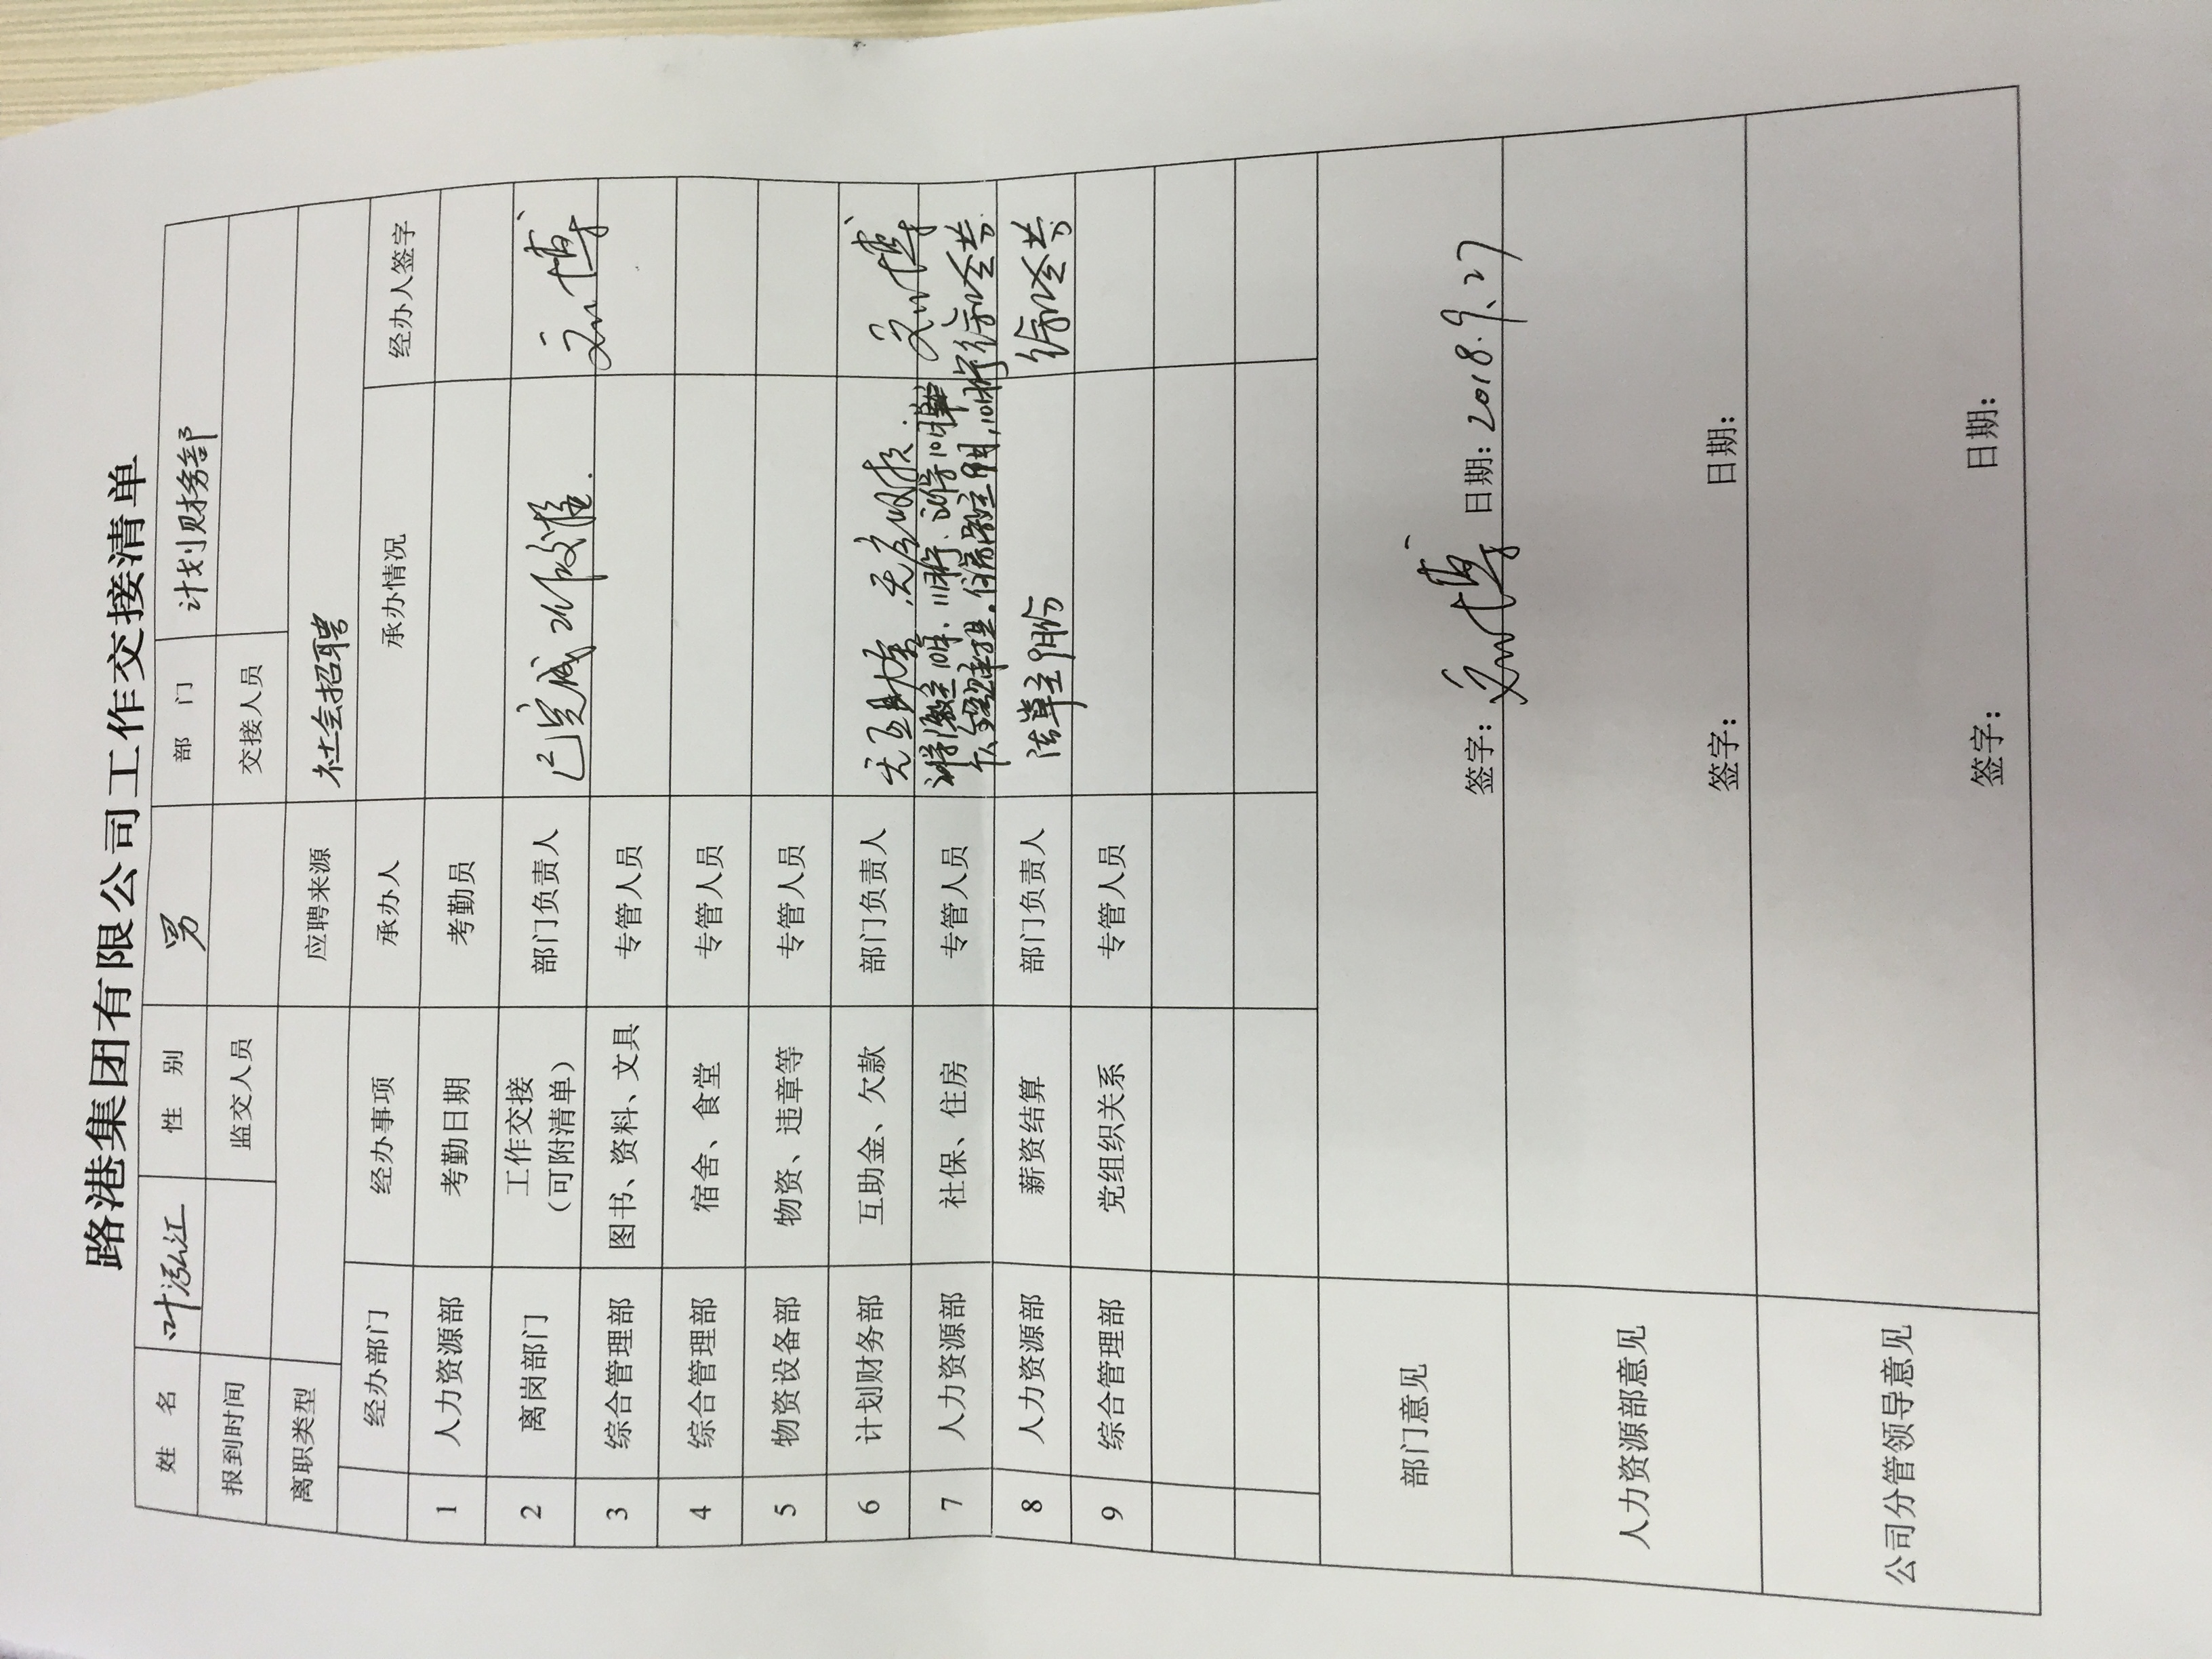 路港集团有限公司工作交接清单
姓 名 叶泓江 性 别 男 部 门 计划财务部
报到时间 监交人员 交接人员
离职类型 应聘来源 社会招聘
经办部门 经办事项 承办人 承办情况 经办人签字
1 人力资源部 考勤日期 考勤员
2 离岗部门 工作交接 部门负责人 已完成工作交接. 刘博
(可附清单)
3 综合管理部 图书、资料、文具 专管人员
4 综合管理部 宿舍、食堂 专管人员
5 物资设备部 物资、违章等 专管人员
6 计划财务部 互助金、欠款 部门负责人 无互助金、无应收款. 刘博
7 人力资源部 社保、住房 专管人员 缴至10月、11月停、社保10月
个人全额承担。住房缴至9月,10月停 徐
8 人力资源部 薪资结算 部门负责人 结算至9月份 徐
9 综合管理部 党组织关系 专管人员
部门意见
签字: 刘博 日期: 2018.9.27
人力资源部意见
签字: 日期:
公司分管领导意见
签字: 日期: